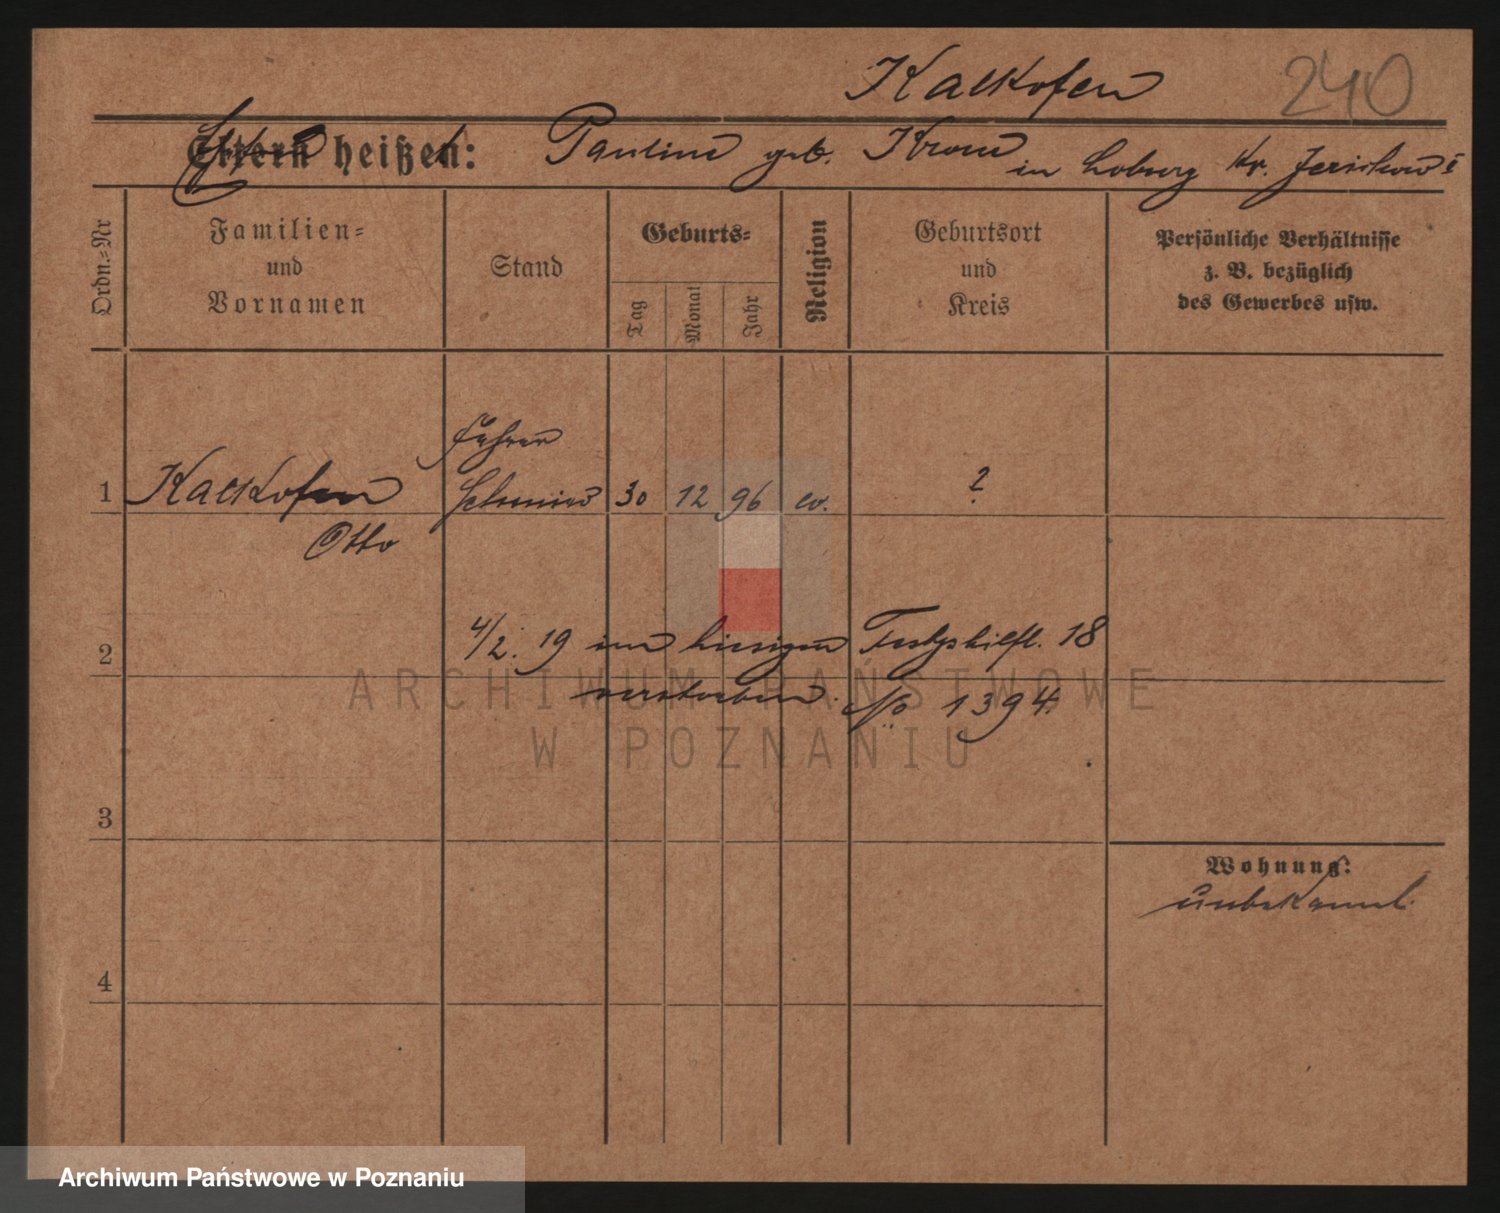 Kalkofen 240
Eltern heißen: Pauline geb. Krone in Loburg Kr. Jerichow I
Ordn.-Nr
Familien-
und
Vornamen
Stand
Geburts-
Tag
Monat
Jahr
Religion
Geburtsort
und
Kreis
Persönliche Verhältnisse
z. B. bezüglich
des Gewerbes usw.
1 Kalkofen 30 12 96 ev. ?
Otto
2 4/2. 19 im hiesigen Festgshilfl. 18
verstorben. No 1394.
3
4
Wohnung:
unbekannt
ARCHIWUM PAŃSTWOWE
W POZNANIU
Archiwum Państwowe w Poznaniu